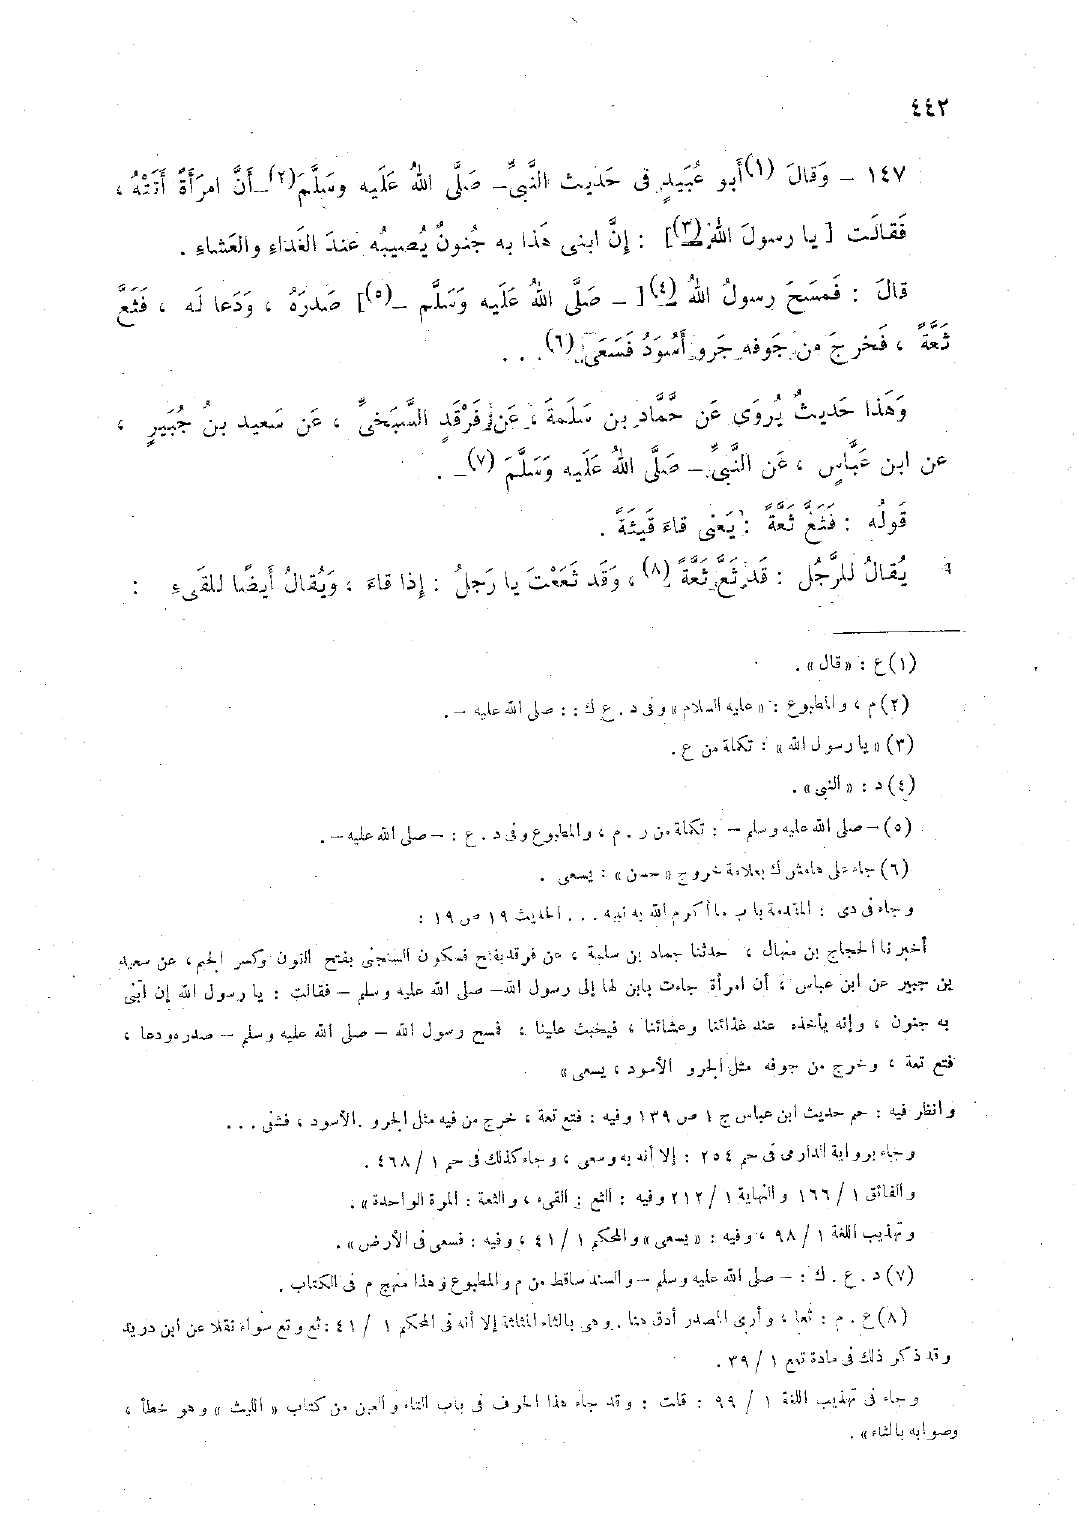 ٤٤٢
١٤٧ – وَقالَ (١) أَبو عُبَيدٍ فى حَديث النَّبىِّ – صَلَّى اللهُ عَلَيه وسَلَّمَ (٢) – أَنَّ امرَأَةً أَتَتْهُ ،
فَقالَت [ يا رسولَ اللهِ (٣) ] : إنَّ ابنى هَذا به جُنونٌ يُصيبُه عندَ الغَداء والعَشاء .
قالَ : فَمسَحَ رسولُ اللهُ (٤) [ – صَلَّى اللهُ عَلَيه وَسَلَّم – (٥) ] صَدرَهُ ، وَدَعا لَه ، فَثَعَّ
ثَعَّةً ، فَخرجَ من جَوفه جَرو أَسْوَدُ فَسَعَى (٦) . . .
وَهَذا حَديثٌ يُروَى عَن حَمَّاد بن سَلَمةَ ، عَن فَرْقَدٍ السَّبَخىِّ ، عَن سَعيد بنُ جُبَيرٍ ،
عن ابن عَبَّاسٍ ، عَن النَّبىِّ – صَلَّى اللهُ عَلَيه وَسَلَّمَ (٧) – .
قَولُه : فَثَعَّ ثَعَّةً : يَعْنى قاءَ قَيئَةً .
يُقالُ للرَّجُل : قَد ثَعَّ ثَعَّةً (٨) ، وَقَد ثَعَعْتَ يا رَجلُ : إذا قاءَ ، وَيُقالُ أَيضًا للقَىء :
(١) ع : « قال » .
(٢) م ، والمطبوع : « عليه السلام » وفى د . ع ك : : صلى الله عليه – .
(٣) « يا رسول الله » : تكملة من ع .
(٤) د : « النبى » .
(٥) – صلى الله عليه وسلم – : تكملة من ر . م ، والمطبوع وفى د . ع : – صلى الله عليه – .
(٦) جاء على هامش ك بعلامة خروج « حسن » : يسعى .
وجاء فى دى : المقدمة باب ما أكرم الله به نبيه . . . الحديث ١٩ ص ١٩ :
أخبرنا الحجاج بن منهال ، حدثنا حماد بن سلمة ، عن فرقد بفتح فسكون السنجى بفتح النون وكسر الجيم ، عن سعيد
بن جبير عن ابن عباس ، أن امرأة جاءت بابن لها إلى رسول الله – صلى الله عليه وسلم – فقالت : يا رسول الله إن ابنى
به جنون ، وإنه يأخذه عند غذائنا وعشائنا ، فيخبث علينا ، فمسح رسول الله – صلى الله عليه وسلم – صدره ودعا ،
فتع تعة ، وخرج من جوفه مثل الجرو الأسود ، يسعى »
وانظر فيه : حم حديث ابن عباس ج ١ ص ١٣٩ وفيه : فتع تعة ، خرج من فيه مثل الجرو الأسود ، فشفى . . .
وجاء برواية الدارمى فى حم ٢٥٤ : إلا أنه به وسعى ، وجاء كذلك فى حم ١ / ٤٦٨ .
والفائق ١ / ١٦٦ والنهاية ١ / ٢١٢ وفيه : الثع : القىء ، والثعة : المرة الواحدة » .
وتهذيب اللغة ١ / ٩٨ ، وفيه : « يسعى » والمحكم ١ / ٤١ ، وفيه : فسعى فى الأرض » .
(٧) د . ع . ك : – صلى الله عليه وسلم – والسند ساقط من م والمطبوع وهذا منهج م فى الكتاب .
(٨) ع . م : ثعا ، وأرى المصدر أدق هنا . وهى بالثاء المثلثة إلا أنه فى المحكم ١ / ٤١ : ثع وتع سواء نقلا عن ابن دريد
وقد ذكر ذلك فى مادة تعع ١ / ٣٩ .
وجاء فى تهذيب اللغة ١ / ٩٩ : قلت : وقد جاء هذا الحرف فى باب التاء والعين من كتاب « الليث » وهو خطأ ،
وصوابه بالثاء » .